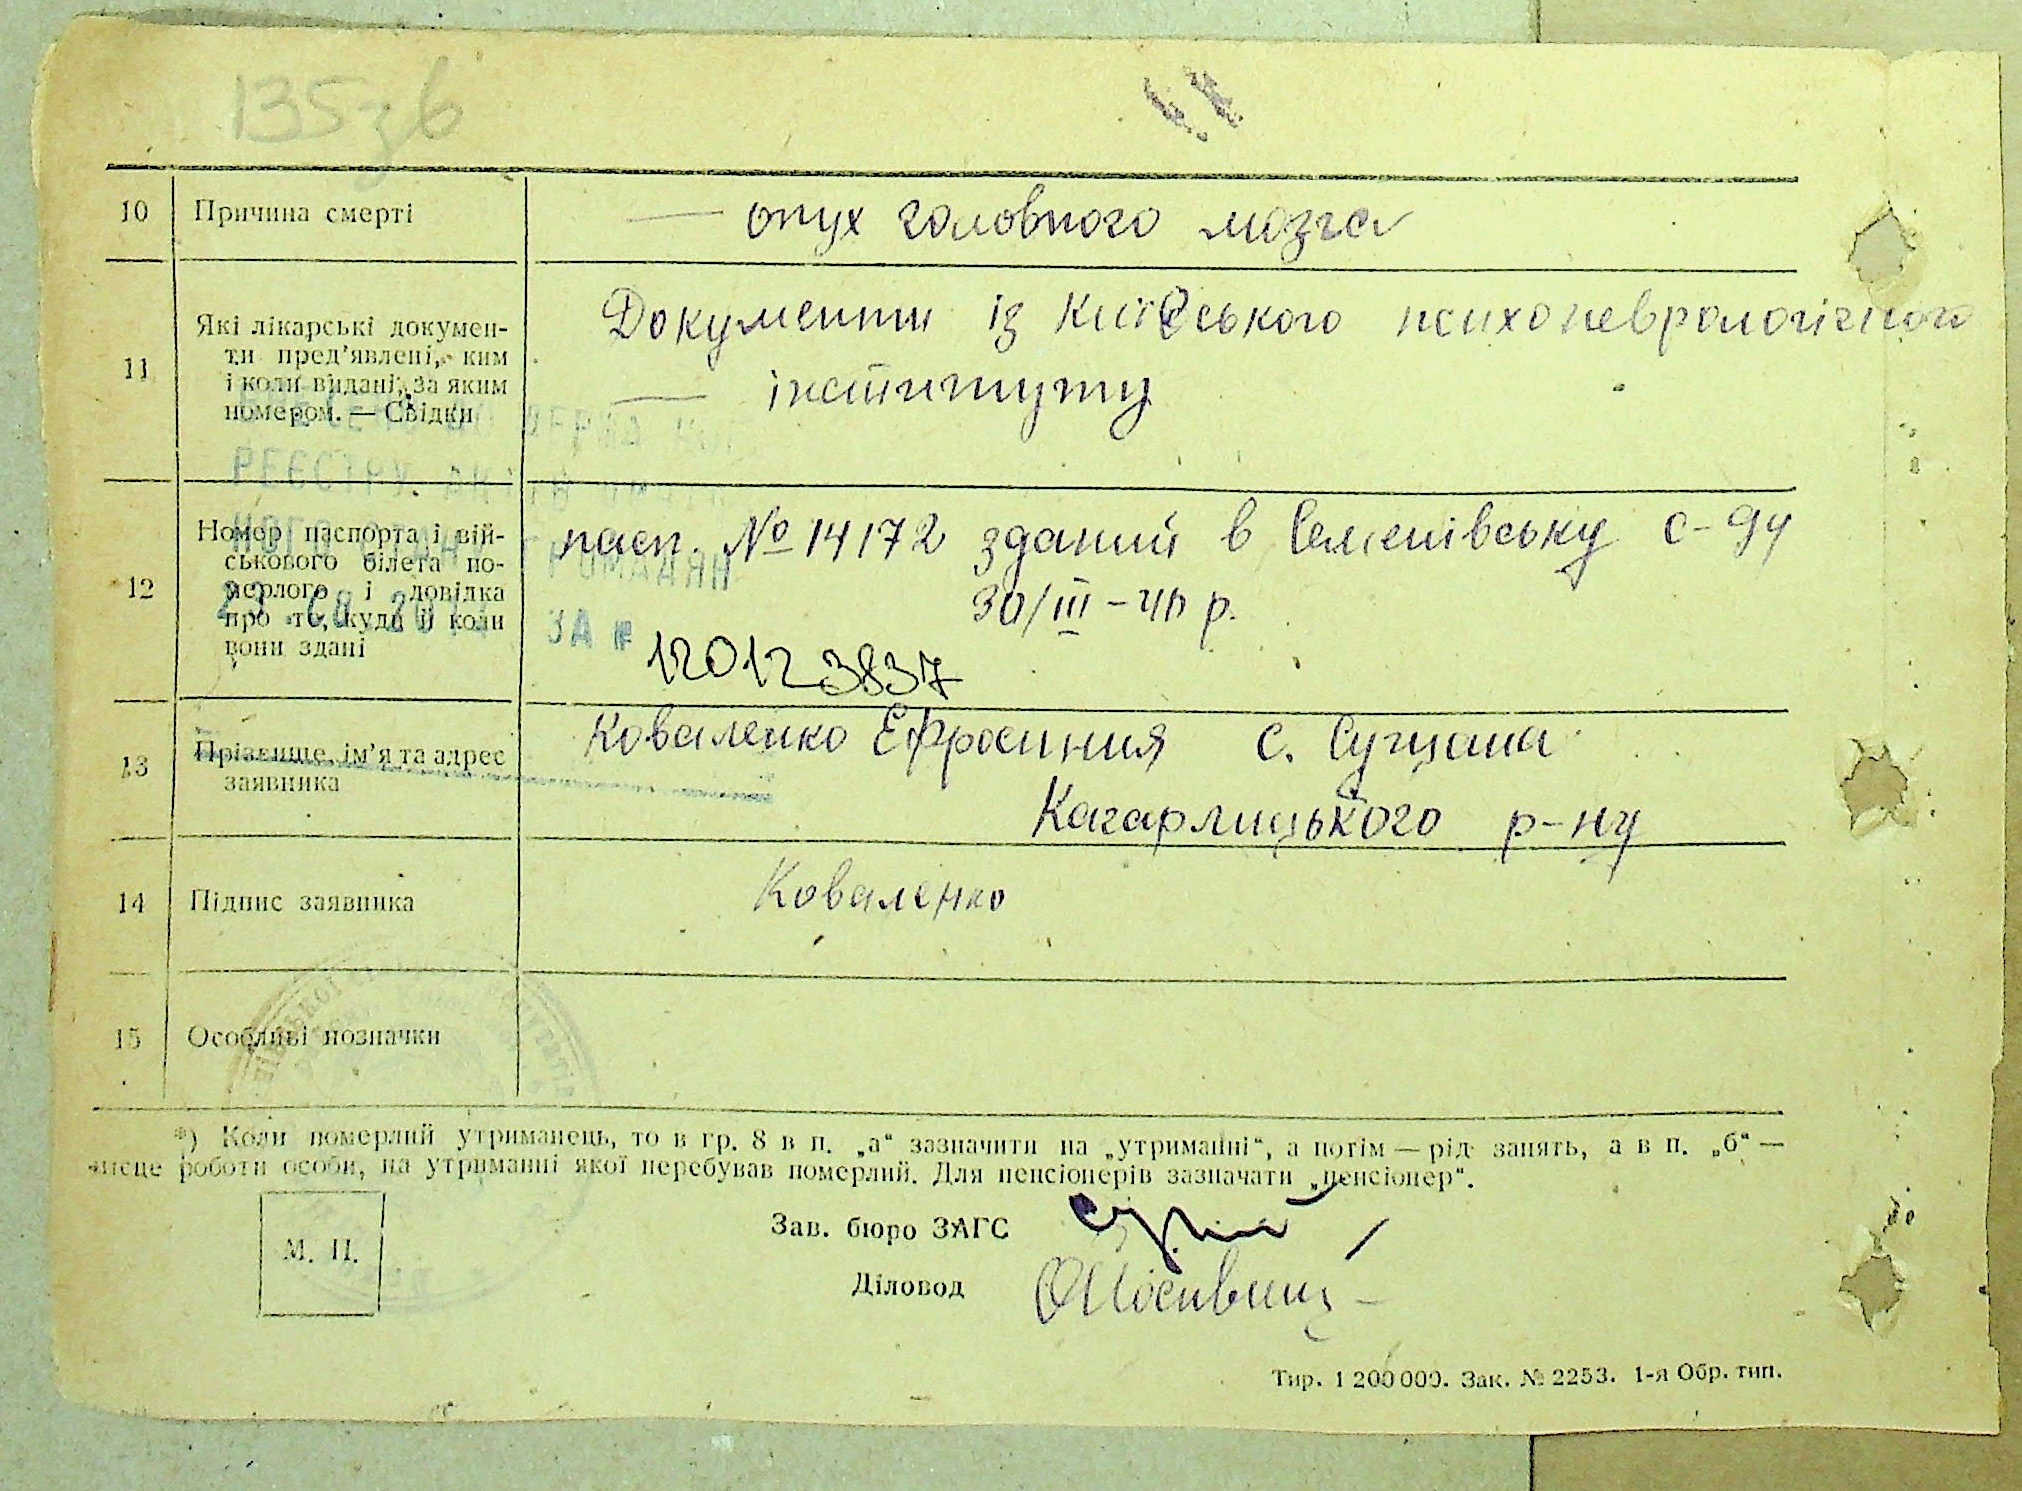 135зв
10 Причина смерті
— опух головного мозга
11 Які лікарські докумен-
ти пред'явлені, ким
і коли видані, за яким
номером. — Свідки
Документи із Київського психоневрологічного
— інституту
РЕЄСТРУ АКТІВ
ГРОМАДЯН
ЗА №
120123837
12 Номер паспорта і вій-
ськового білета по-
мерлого і довідка
про те, куди й коли
вони здані
пасп. № 14172 зданий в Семенівську с-ду
30/III-40 р.
13 Прізвище, ім'я та адрес
заявника
Коваленко Ефросиния с. Сущана
Кагарлицького р-ну
14 Підпис заявника
Коваленко
15 Особливі позначки
*) Коли померлий утриманець, то в гр. 8 в п. „а“ зазначити на „утриманні“, а потім — рід занять, а в п. „б“ —
місце роботи особи, на утриманні якої перебував померлий. Для пенсіонерів зазначати „пенсіонер“.
М. П.
Зав. бюро ЗАГС
Діловод
Тир. 1 200 000. Зак. № 2253. 1-я Обр. тип.